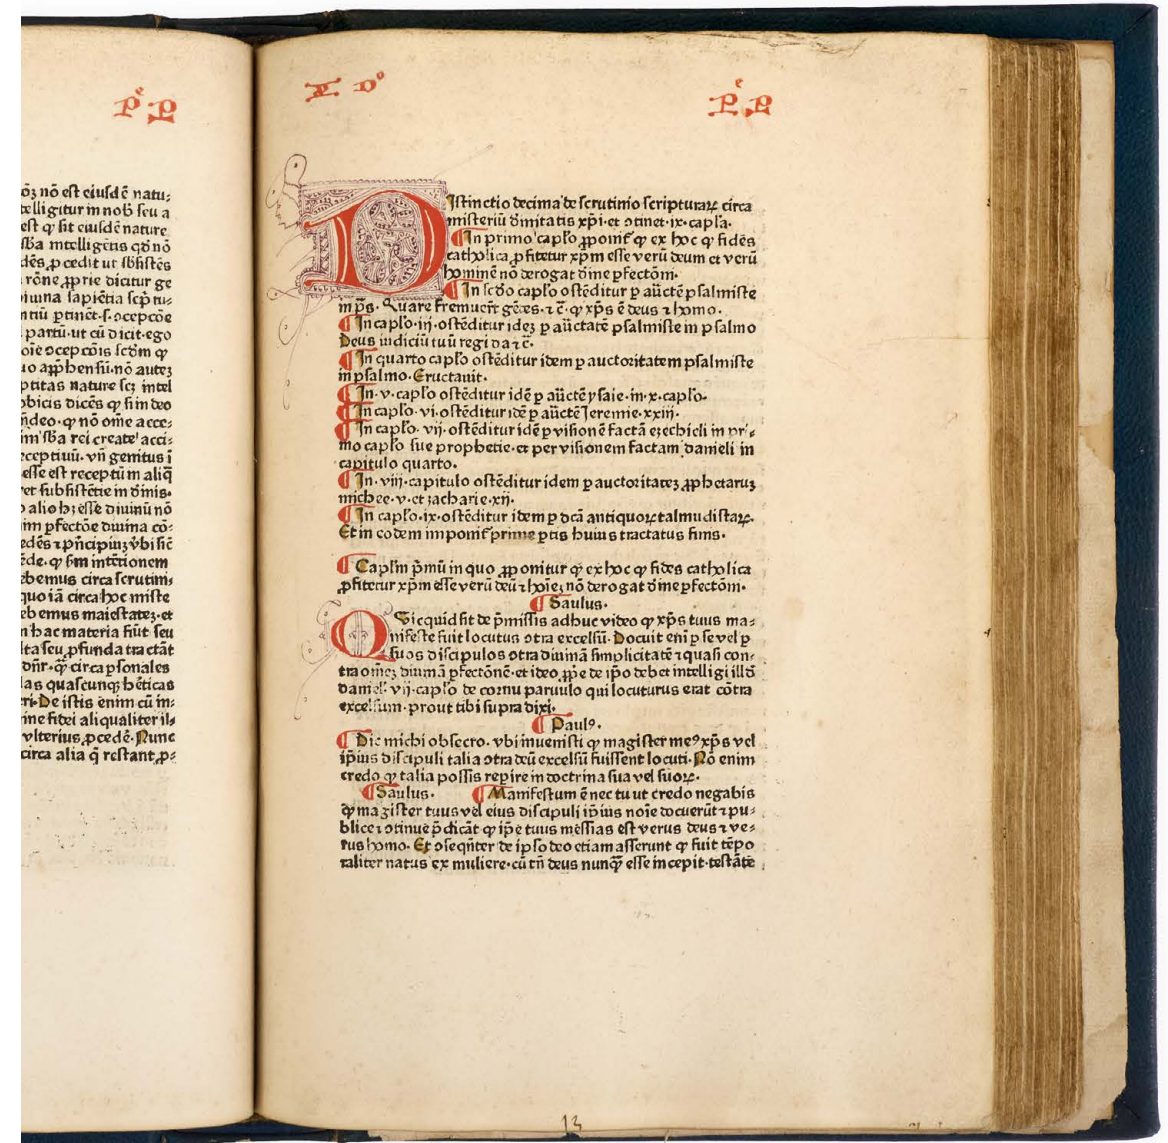 pᵉ p
õꝫ nõ est eiusdẽ natu⸗
telligitur in nob̃ seu a
est ꝙ sit eiusdẽ nature
sb̃a intelligẽtis qđ nõ
dẽs ꝓcedit ut sb̃sistẽs
rõne ꝓprie dicitur ge
iuina sapiẽtia scp̃tu⸗
ntiũ ꝑtinet·s·ↄcepcõe
partũ·ut cũ dicit·ego
oiẽ ↄcepcõis scđm ꝙ
o app̃hensũ·nõ autẽ
ptitas nature scꝫ intel
obicis dicẽs ꝙ si in deo
ñdeo·ꝙ nõ om̃e acce⸗
im sb̃a rei create acci⸗
eceptiuũ·vñ genitus ĩ
esse est receptũ in aliq̃
et subsistẽtie in đinis·
alio hꝫ esse diuinũ nõ
im ꝑfectõe diuina cõ⸗
edẽs ⁊ pñcipiuꝫ vbi sic̃
ẽde·ꝙ sm̃ intẽtionem
ebemus circa scrutini⸗
quo iã circa hoc miste
ebemus maiestateꝫ·et
n hac materia fiũt seu
lta seu ꝓfunda tractãt
oñr·q̃ circa ꝑsonales
as quascunqꝫ hẽticas
ri·De istis enim cũ in⸗
ine fidei aliqualiter il⸗
vlterius ꝓcedẽ·Nunc
circa alia q̃ restant ꝓ⸗
A Dº
pᵉ p
DIstinctio decima de scrutinio scripturaꝝ circa
misteriũ đinitatis xp̃i·et ↄtinet·ix·capl̃a·
In primo capl̃o ꝓponit̃ ꝙ ex hoc ꝙ fides
catholica ꝓfitetur xp̃m esse verũ deum et verũ
hominẽ nõ derogat đine ꝑfectõi·
In scđo capl̃o ostẽditur ꝑ aũctẽ psalmiste
in pš·Quare fremuer̃t gẽtes·⁊c̃·ꝙ xp̃s ẽ deus ⁊ homo·
In capl̃o·iij·ostẽditur ideꝫ ꝑ aũctatẽ psalmiste in psalmo
Deus iudiciũ tuũ regi da ⁊c̃·
In quarto capl̃o ostẽditur idem ꝑ auctoritatem psalmiste
in psalmo·Eructauit·
In·v·capl̃o ostẽditur idẽ ꝑ aũctẽ ysaie·in·x·capl̃o·
In capl̃o·vi·ostẽditur idẽ ꝑ aũctẽ Jeremie·xxiij·
In capl̃o·vij·ostẽditur idẽ ꝑ visionẽ factã eꝫechieli in pri⸗
mo capl̃o sue prophetie·et per visionem factam danieli in
capitulo quarto·
In·viij·capitulo ostẽditur idem ꝑ auctoritateꝫ ꝓphetaruꝫ
michee·v·et ꝫacharie·xij·
In capl̃o·ix·ostẽditur idem ꝑ dc̃a antiquoꝝ talmudistaꝝ·
Et in eodem imponit̃ prime ꝑtis huius tractatus finis·
Capl̃m p̃mũ in quo ꝓponitur ꝙ ex hoc ꝙ fides catholica
ꝓfitetur xp̃m esse verũ deũ ⁊ hoĩeꝫ nõ derogat đine ꝑfectõi·
Saulus·
QVicquid sit de p̃missis adhuc video ꝙ xp̃s tuus ma⸗
nifeste fuit locutus ↄtra excelsũ·Docuit eni ꝑ se vel ꝑ
suos discipulos ↄtra diuinã simplicitatẽ ⁊ quasi con⸗
tra omeꝫ diuinã ꝑfectõnẽ·et ideo ꝓp̃e de ip̃o debet intelligi illđ
daniel̃ vij·capl̃o de cornu paruulo qui locuturus erat cõtra
excelsum·prout tibi supra dixi·
Paulꝰ·
Dic michi obsecro·vbi inuenisti ꝙ magister meꝰ xp̃s vel
ip̃ius discipuli talia ↄtra deũ excelsũ fuissent locuti·Nõ enim
credo ꝙ talia possis reꝑire in doctrina sua vel suoꝝ·
Saulus· Manifestum ẽ nec tu ut credo negabis
ꝙ magister tuus vel eius discipuli ip̃ius noĩe docuerũt ⁊ pu⸗
blice ⁊ ↄtinue p̃dicãt ꝙ ip̃e tuus messias est verus deus ⁊ ve⸗
rus homo·Et ↄseqñter de ipso deo etiam asserunt ꝙ fuit tẽpo
raliter natus ex muliere·cũ tñ deus nunꝙ̃ esse incepit·testãte
13